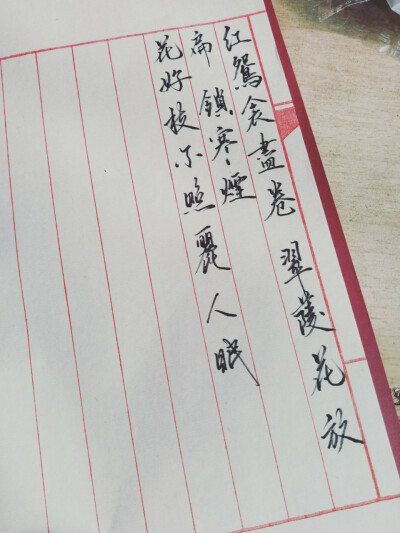 红鴛衾盡卷 翠菱花放
帘鎖寒煙
花好枝不照麗人眠